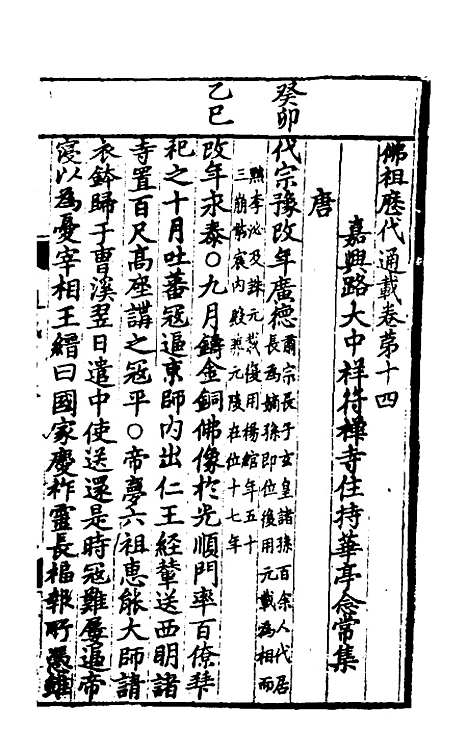 佛祖歷代通載卷第十四
嘉興路大中祥符禪寺住持華亭念常集
唐
癸卯
代宗豫改年廣德肅宗長子玄皇諸孫百余人代居
長為嫡孫即位後用元載為相而
黜李泌及誅元載復用楊綰年五十
三崩蓯宸內殿葬元陵在位十七年
乙巳
改年永泰○九月鑄金銅佛像於光順門率百僚拜
祀之十月吐蕃冦逼京師內出仁王經輦送西明諸
寺置百尺高座講之冦平○帝夢六祖惠能大師請
衣鉢歸于曹溪翌日遣中使送還是時冦難屢逼帝
寖以為憂宰相王縉曰國家慶祚靈長福報所憑雖